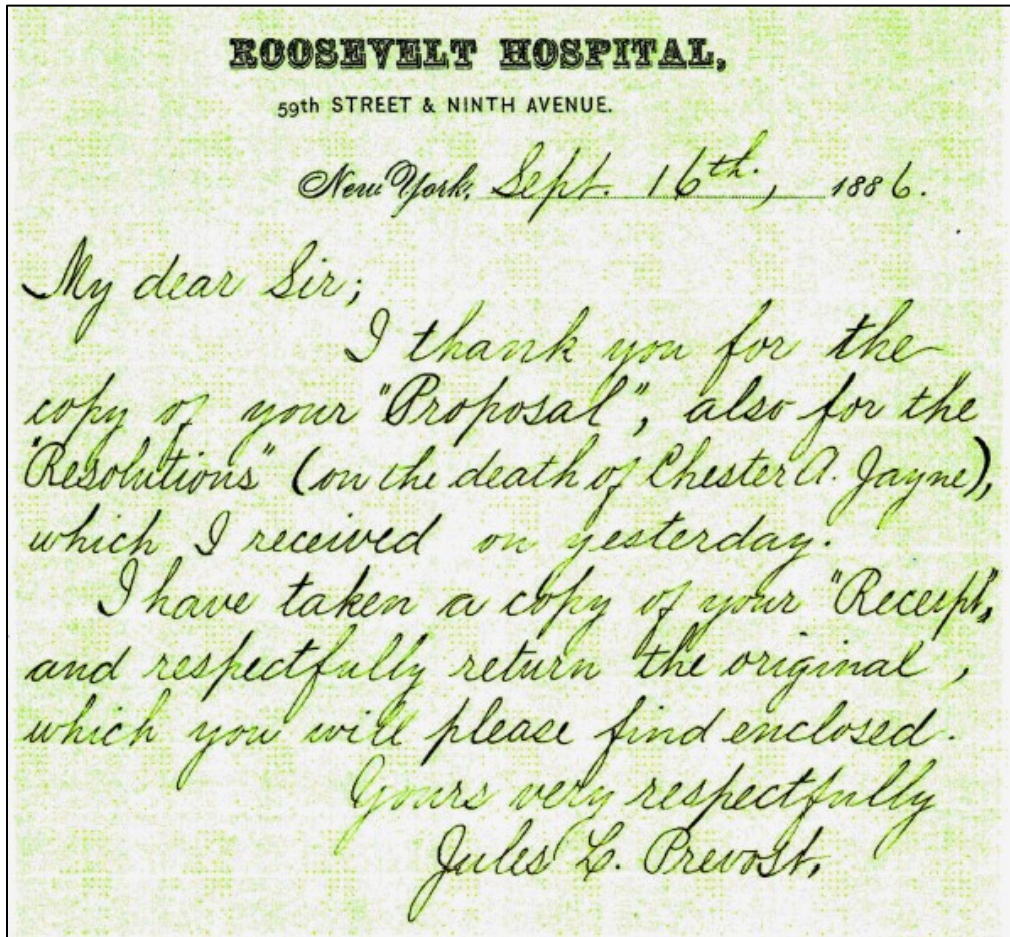 ROOSEVELT HOSPITAL,
59th STREET & NINTH AVENUE.
New York, Sept. 16th., 1886.
My dear Sir;
I thank you for the
copy of your "Proposal", also for the
"Resolutions" (on the death of Chester A. Jayne),
which I received on yesterday.
I have taken a copy of your "Receipt",
and respectfully return the original,
which you will please find enclosed.
Yours very respectfully
Jules L. Prevost,